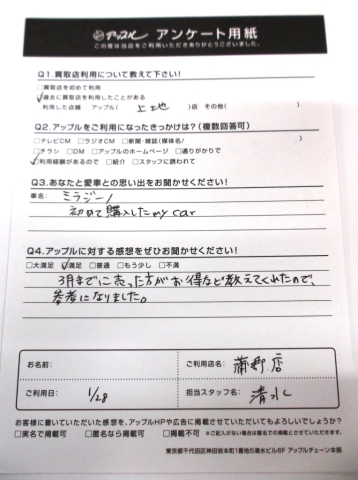 アップル アンケート用紙
この度は当店をご利用いただきありがとうございました。
Q1.買取店利用について教えて下さい!
□買取店を初めて利用
☑過去に買取店を利用したことがある
利用した店舗 アップル( 上土地 )店 その他( )
Q2.アップルをご利用になったきっかけは?(複数回答可)
□テレビCM □ラジオCM □新聞・雑誌(媒体名/ )
□チラシ □DM □アップルのホームページ □通りがかりで
☑利用経験があるので □紹介 □スタッフに誘われて
Q3.あなたと愛車との思い出をお聞かせください!
車名: ミラジーノ
初めて購入したmy car
Q4.アップルに対する感想をぜひお聞かせください!
□大満足 ☑満足 □普通 □もう少し □不満
3月までに売った方がお得など教えてくれたので、
参考になりました。
お名前:
ご利用店名: 蒲郡店
ご利用日: 1/28
担当スタッフ名: 清水
お客様に書いていただいた感想を、アップルHPや広告に掲載させていただいてもよろしいでしょうか?
□実名で掲載可 □匿名なら掲載可 □掲載不可 ※ご記入がない場合は匿名での掲載とさせていただきます。
東京都千代田区神田岩本町1番地5清水ビル6F アップルチェーン本部